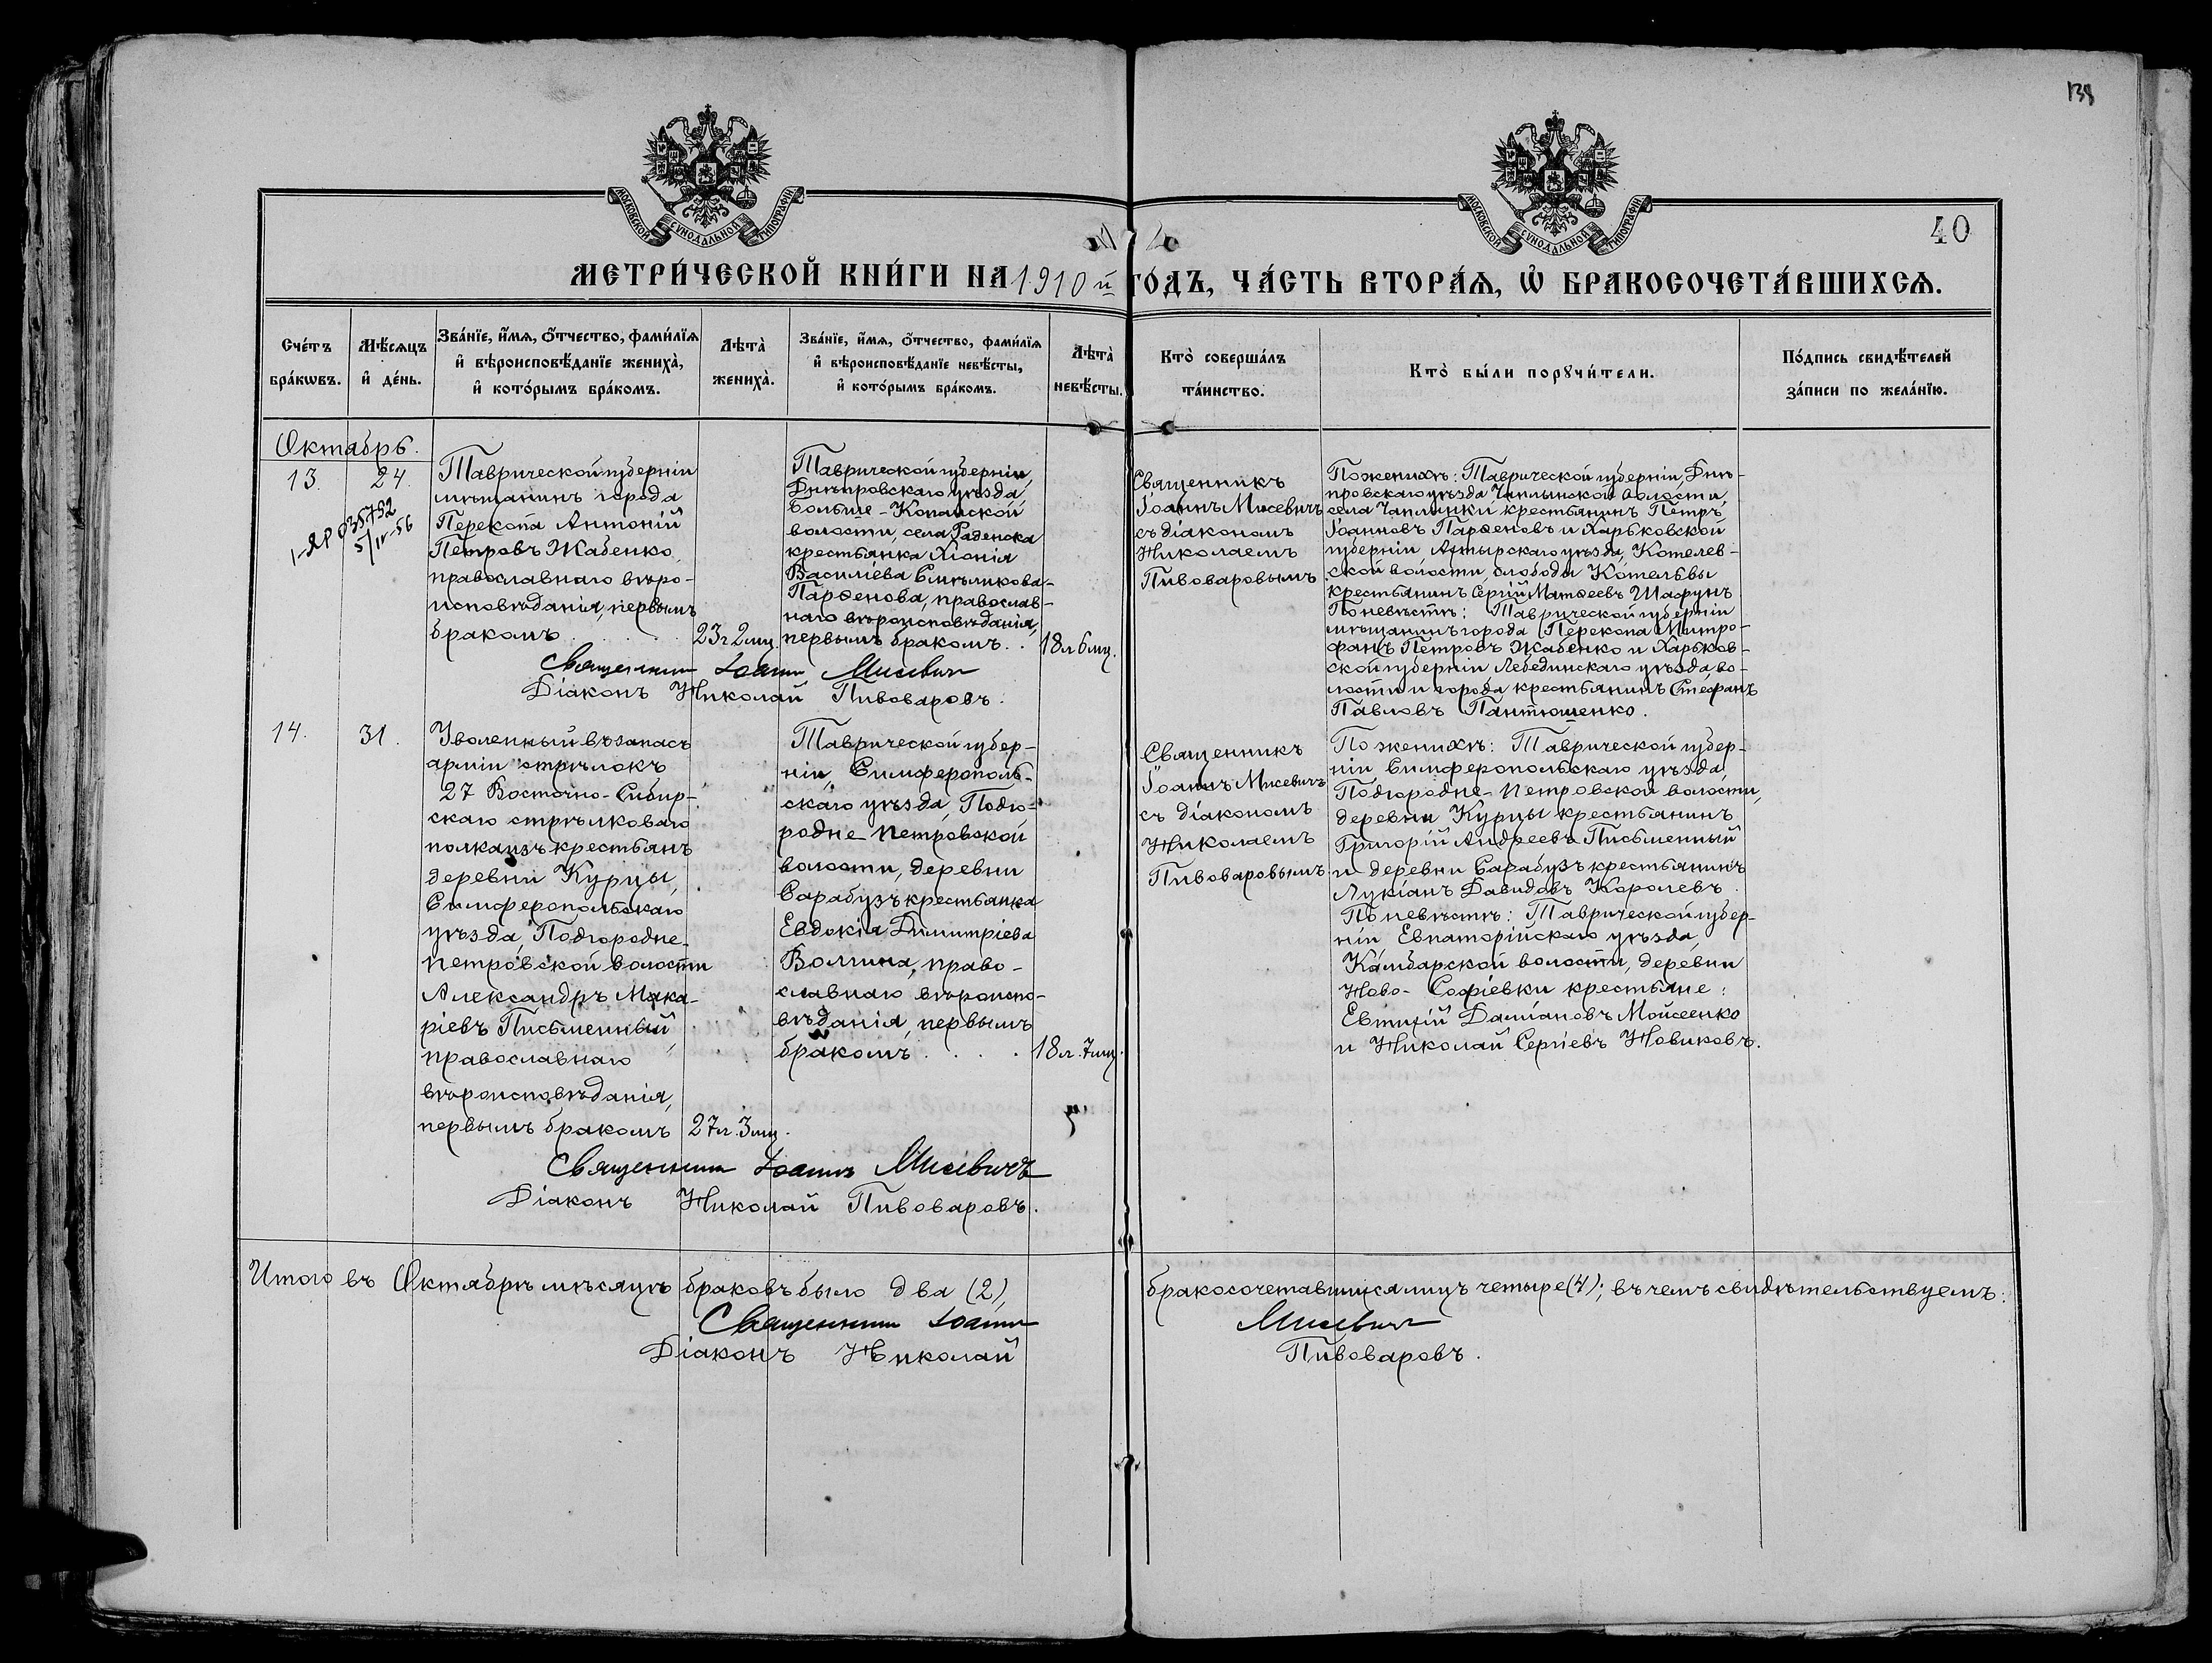 138
МОСКОВСКОЙ СѴНОДАЛЬНОЙ ТИПОГРАФІИ
МОСКОВСКОЙ СѴНОДАЛЬНОЙ ТИПОГРАФІИ
40
МЕТРИ́ЧЕСКОЙ КНИ́ГИ НА 1910 й ГО́ДЪ, ЧА́СТЬ ВТОРА́Ѧ, Ѡ҆ БРАКОСОЧЕТА́ВШИХСѦ.
Сче́тъ
бра́кѡвъ.
Мѣ́сѧцъ
и҆ де́нь.
Зва́нїе, и҆́мѧ, ѻ҆́тчество, фами́лїѧ
и҆ вѣроисповѣ́данїе жениха̀,
и҆ кото́рымъ бра́комъ.
Лѣта̀
жениха̀.
Зва́нїе, и҆́мѧ, ѻ҆́тчество, фами́лїѧ
и҆ вѣроисповѣ́данїе невѣ́сты,
и҆ кото́рымъ бра́комъ.
Лѣта̀
невѣ́сты.
Кто̀ соверша́лъ
та́инство.
Кто̀ бы́ли порꙋчи́тели.
По́дпись свидѣ́телей
за́писи по жела́нїю.
Октябрь.
13.
24.
035792
5/IV-56
Таврической губерніи
мѣщанинъ города
Перекопа Антоній
Петровъ Жабенко
православнаго вѣро-
исповѣданія, первымъ
бракомъ
23г 2мц.
Таврической губерніи,
Днѣпровскаго уѣзда,
Больше-Копанской
волости, села Раденска
крестьянка Хіонія
Василіева Смѣликова-
Парѳенова, православ-
наго вѣроисповѣданія,
первымъ бракомъ
18л 6мц.
Священникъ
Іоаннъ Мисевичъ
съ діакономъ
Николаемъ
Пивоваровымъ
По женихѣ: Таврической губерніи, Днѣ-
провскаго уѣзда, Чаплынской волости,
села Чаплинки крестьянинъ Петръ
Іоанновъ Парѳеновъ и Харьковской
губерніи Ахтырскаго уѣзда, Котелев-
ской волости, слободы Котельвы
крестьянинъ Сергій Матѳеевъ Шафунъ
По невѣстѣ: Таврической губерніи
мѣщанинъ города Перекопа Митро-
фанъ Петровъ Жабенко и Харьков-
ской губерніи Лебединскаго уѣзда, во-
лости и города крестьянинъ Стефанъ
Павловъ Пантюшенко.
Священникъ Іоаннъ Мисевичъ
Діаконъ Николай Пивоваровъ.
14.
31.
Уволенный въ запасъ
арміи стрѣлокъ
27 Восточно-Сибир-
скаго стрѣлковаго
полка изъ крестьянъ
деревни Курцы,
Симферопольскаго
уѣзда, Подгородне-
Петровской волости
Александръ Мака-
ріевъ Письменный,
православнаго
вѣроисповѣданія,
первымъ бракомъ
27л. 3мц.
Таврической губер-
ніи, Симферополь-
скаго уѣзда, Подго-
родне Петровской
волости, деревни
Сарабузъ крестьянка
Евдокія Димитріева
Волгина, право-
славнаго вѣроиспо-
вѣданія, первымъ
бракомъ
18л. 7мц.
Священникъ
Іоаннъ Мисевичъ
съ діакономъ
Николаемъ
Пивоваровымъ
По женихѣ: Таврической губер-
ніи Симферопольскаго уѣзда,
Подгородне-Петровской волости,
деревни Курцы крестьянинъ
Григорій Андреевъ Письменный
и деревни Сарабузъ крестьянинъ
Лукіанъ Давидовъ Королевъ.
По невѣстѣ: Таврической губер-
ніи, Евпаторійскаго уѣзда,
Камбарской волости, деревни
Ново-Софіевки крестьяне:
Евтихій Даміановъ Мойсеенко
и Николай Сергіевъ Новиковъ.
Священникъ Іоаннъ Мисевичъ
Діаконъ Николай Пивоваровъ.
Итого въ Октябрѣ мѣсяцѣ браковъ было два (2), бракосочетавшихся лицъ четыре (4); въ чемъ свидѣтельствуемъ:
Священникъ Іоаннъ Мисевичъ
Діаконъ Николай Пивоваровъ.